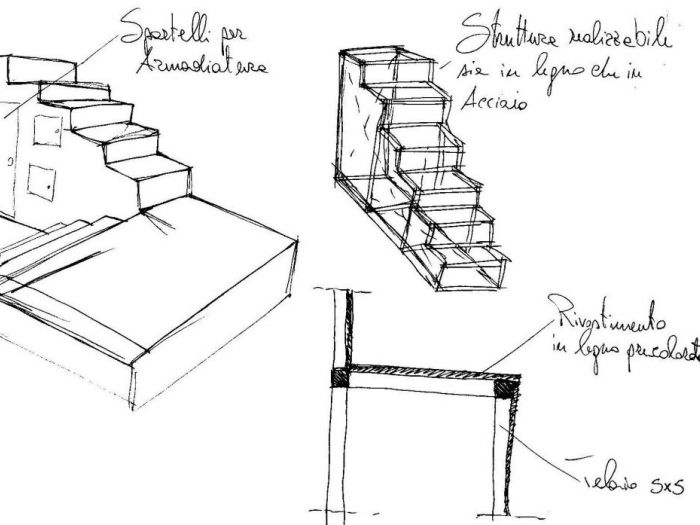 Sportelli per
Armadiatura
Struttura realizzabile
sia in legno che in
Acciaio
Rivestimento
in legno precolorat
Telaio 5x5